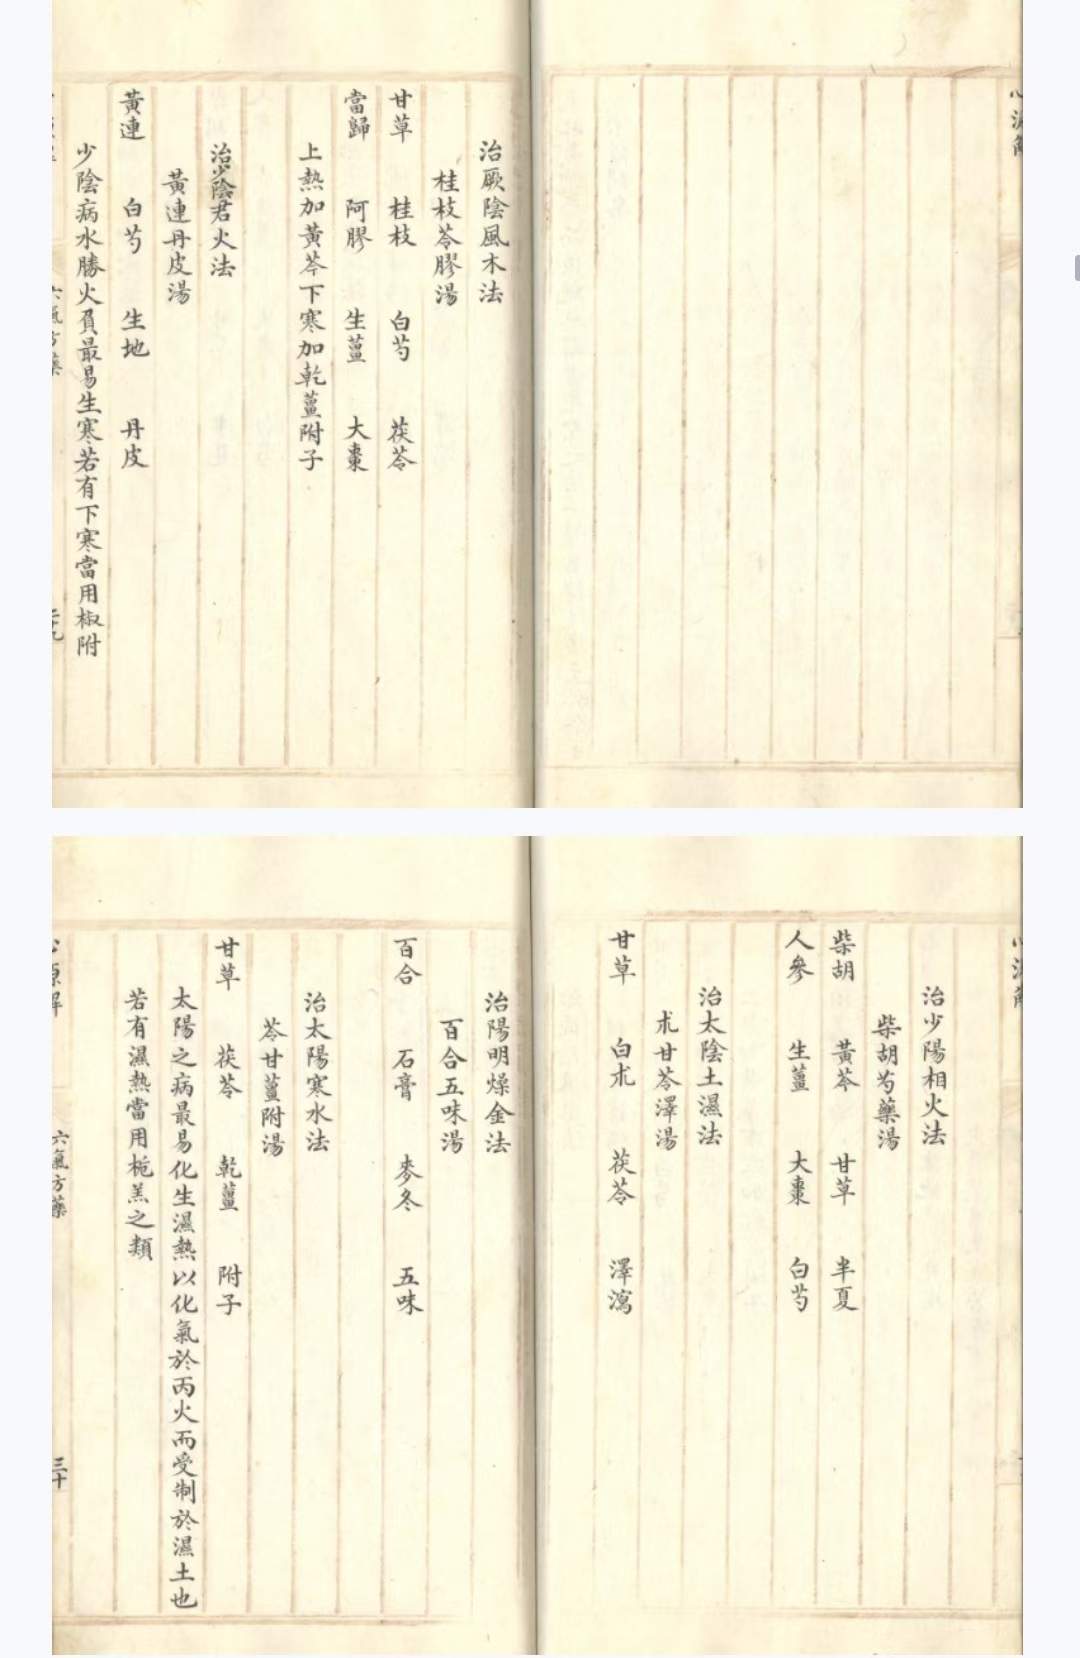 治厥陰風木法
桂枝苓膠湯
甘草 桂枝 白芍 茯苓
當歸 阿膠 生薑 大棗
上熱加黃芩下寒加乾薑附子
治少陰君火法
黃連丹皮湯
黃連 白芍 生地 丹皮
少陰病水勝火負最易生寒若有下寒當用椒附
六氣方藥
治少陽相火法
柴胡芍藥湯
柴胡 黃芩 甘草 半夏
人參 生薑 大棗 白芍
治太陰土濕法
朮甘苓澤湯
甘草 白朮 茯苓 澤瀉
治陽明燥金法
百合五味湯
百合 石膏 麥冬 五味
治太陽寒水法
苓甘薑附湯
甘草 茯苓 乾薑 附子
太陽之病最易化生濕熱以化氣於丙火而受制於濕土也
若有濕熱當用梔羔之類
六氣方藥 三十